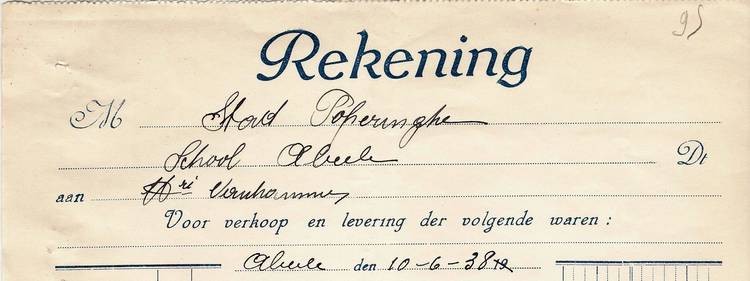 95
Rekening
M Stad Poperinghe
School Abeele Dt
aan Hri Vanhamme
Voor verkoop en levering der volgende waren :
Abeele den 10-6-38 19